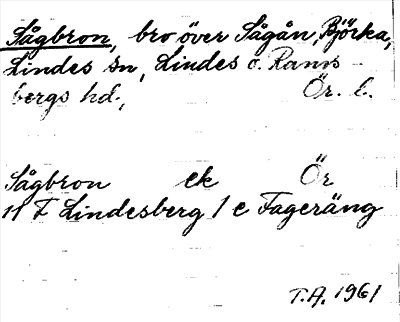 Sågbron, bro över Sågån, Björka,
Lindes sn, Lindes o. Rams-
bergs hd., Ör. l.
Sågbron ek Ör
11 F Lindesberg 1 e Fageräng
T.A. 1961